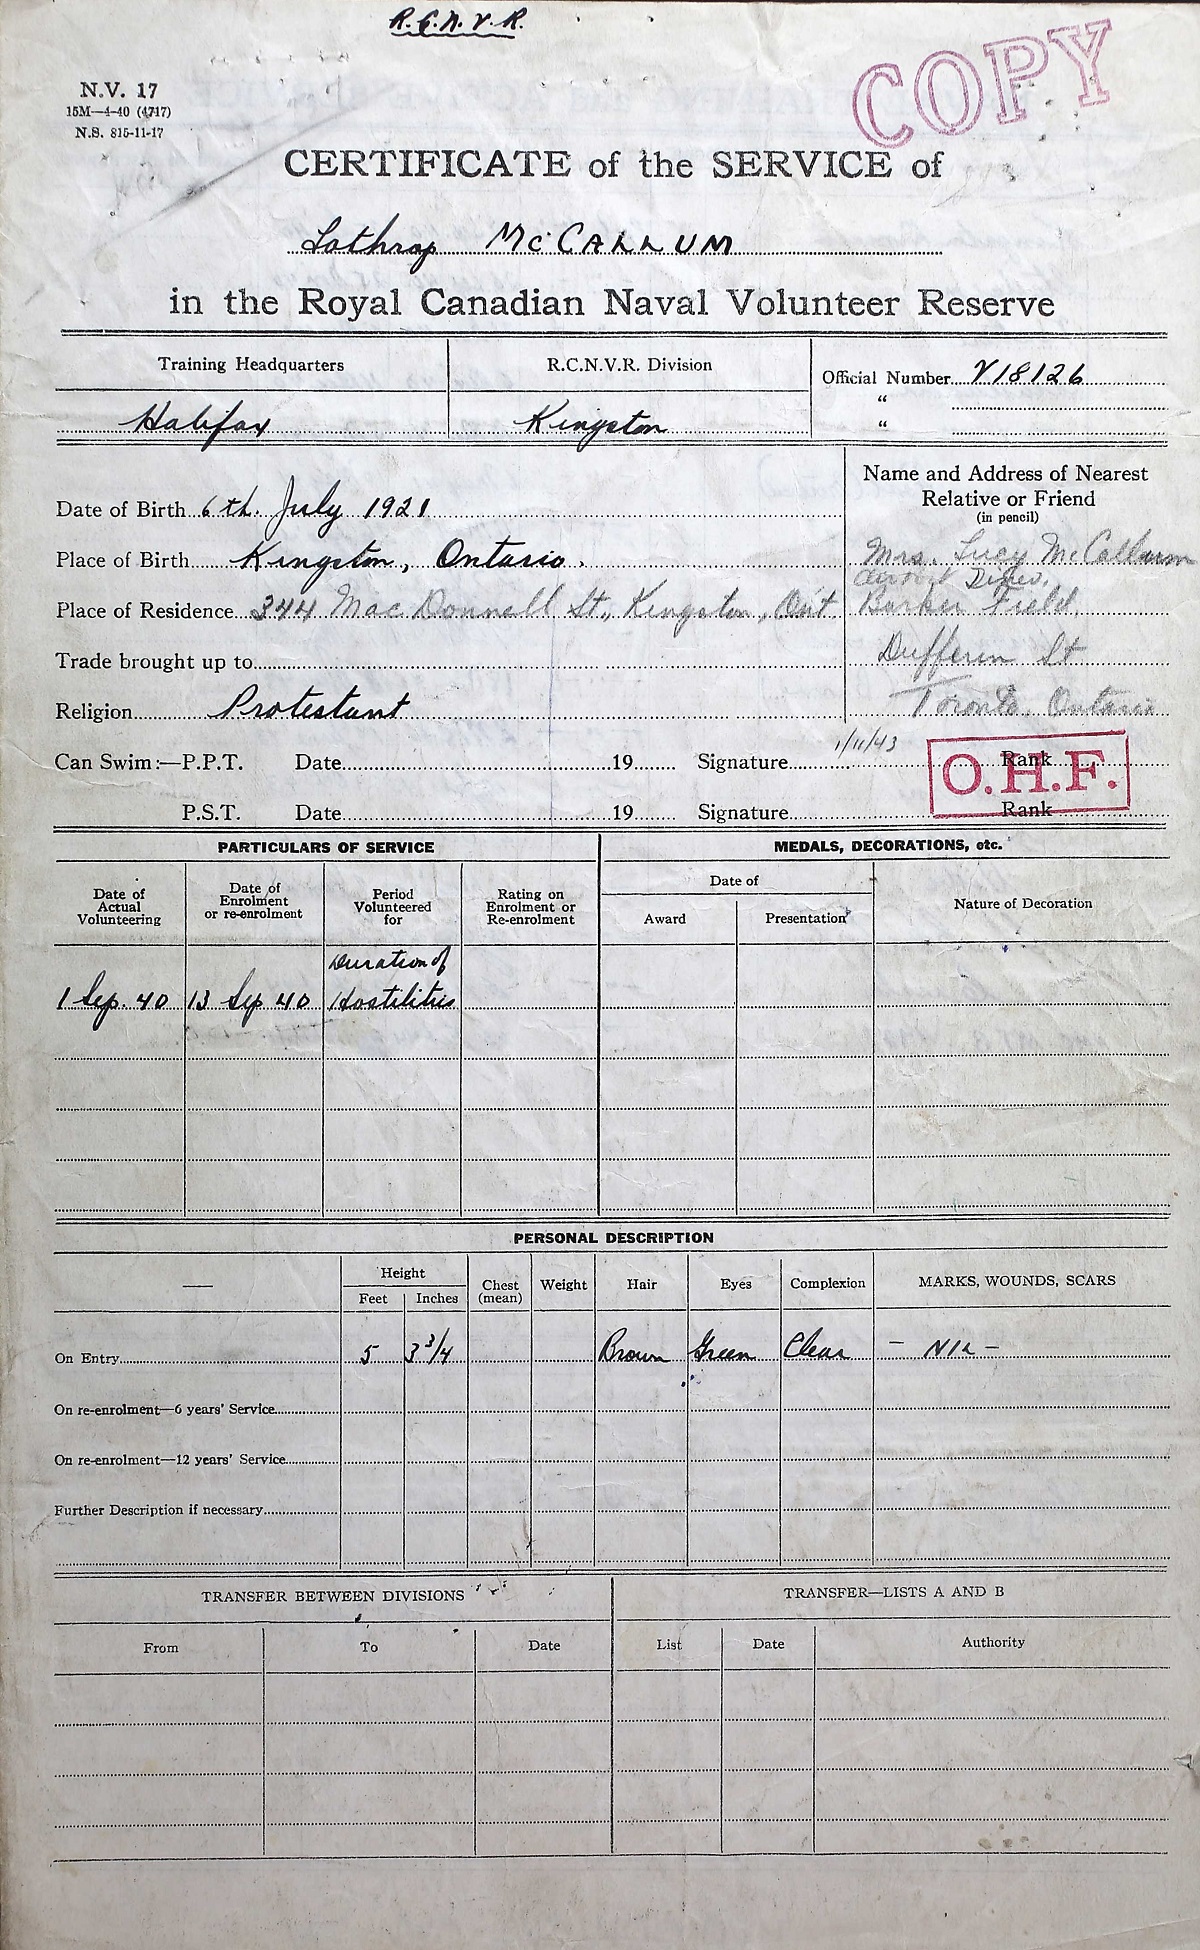 R.C.N.V.R.
COPY
N.V. 17
15M—4-40 (4717)
N.S. 815-11-17
CERTIFICATE of the SERVICE of
Lothrop McCALLUM
in the Royal Canadian Naval Volunteer Reserve
Training Headquarters R.C.N.V.R. Division Official Number V18126
"
Halifax Kingston "
Name and Address of Nearest
Relative or Friend
(in pencil)
Date of Birth 6th. July 1921
Place of Birth Kingston, Ontario. Mrs. Lucy McCallum
Place of Residence 344 Mac Donnell St., Kingston, Ont Barker Field
Trade brought up to Dufferin St
Religion Protestant Toronto, Ontario
1/11/43
Can Swim:—P.P.T. Date 19 Signature Rank
O.H.F.
P.S.T. Date 19 Signature Rank
PARTICULARS OF SERVICE MEDALS, DECORATIONS, etc.
Date of Actual Volunteering Date of Enrolment or re-enrolment Period Volunteered for Rating on Enrolment or Re-enrolment Date of Nature of Decoration
Award Presentation
Duration of
1 Sep. 40 13 Sep 40 Hostilities
PERSONAL DESCRIPTION
— Height Chest (mean) Weight Hair Eyes Complexion MARKS, WOUNDS, SCARS
Feet Inches
On Entry 5 3 3/4 Brown Green Clear — NIL —
On re-enrolment—6 years' Service
On re-enrolment—12 years' Service
Further Description if necessary
TRANSFER BETWEEN DIVISIONS TRANSFER—LISTS A AND B
From To Date List Date Authority